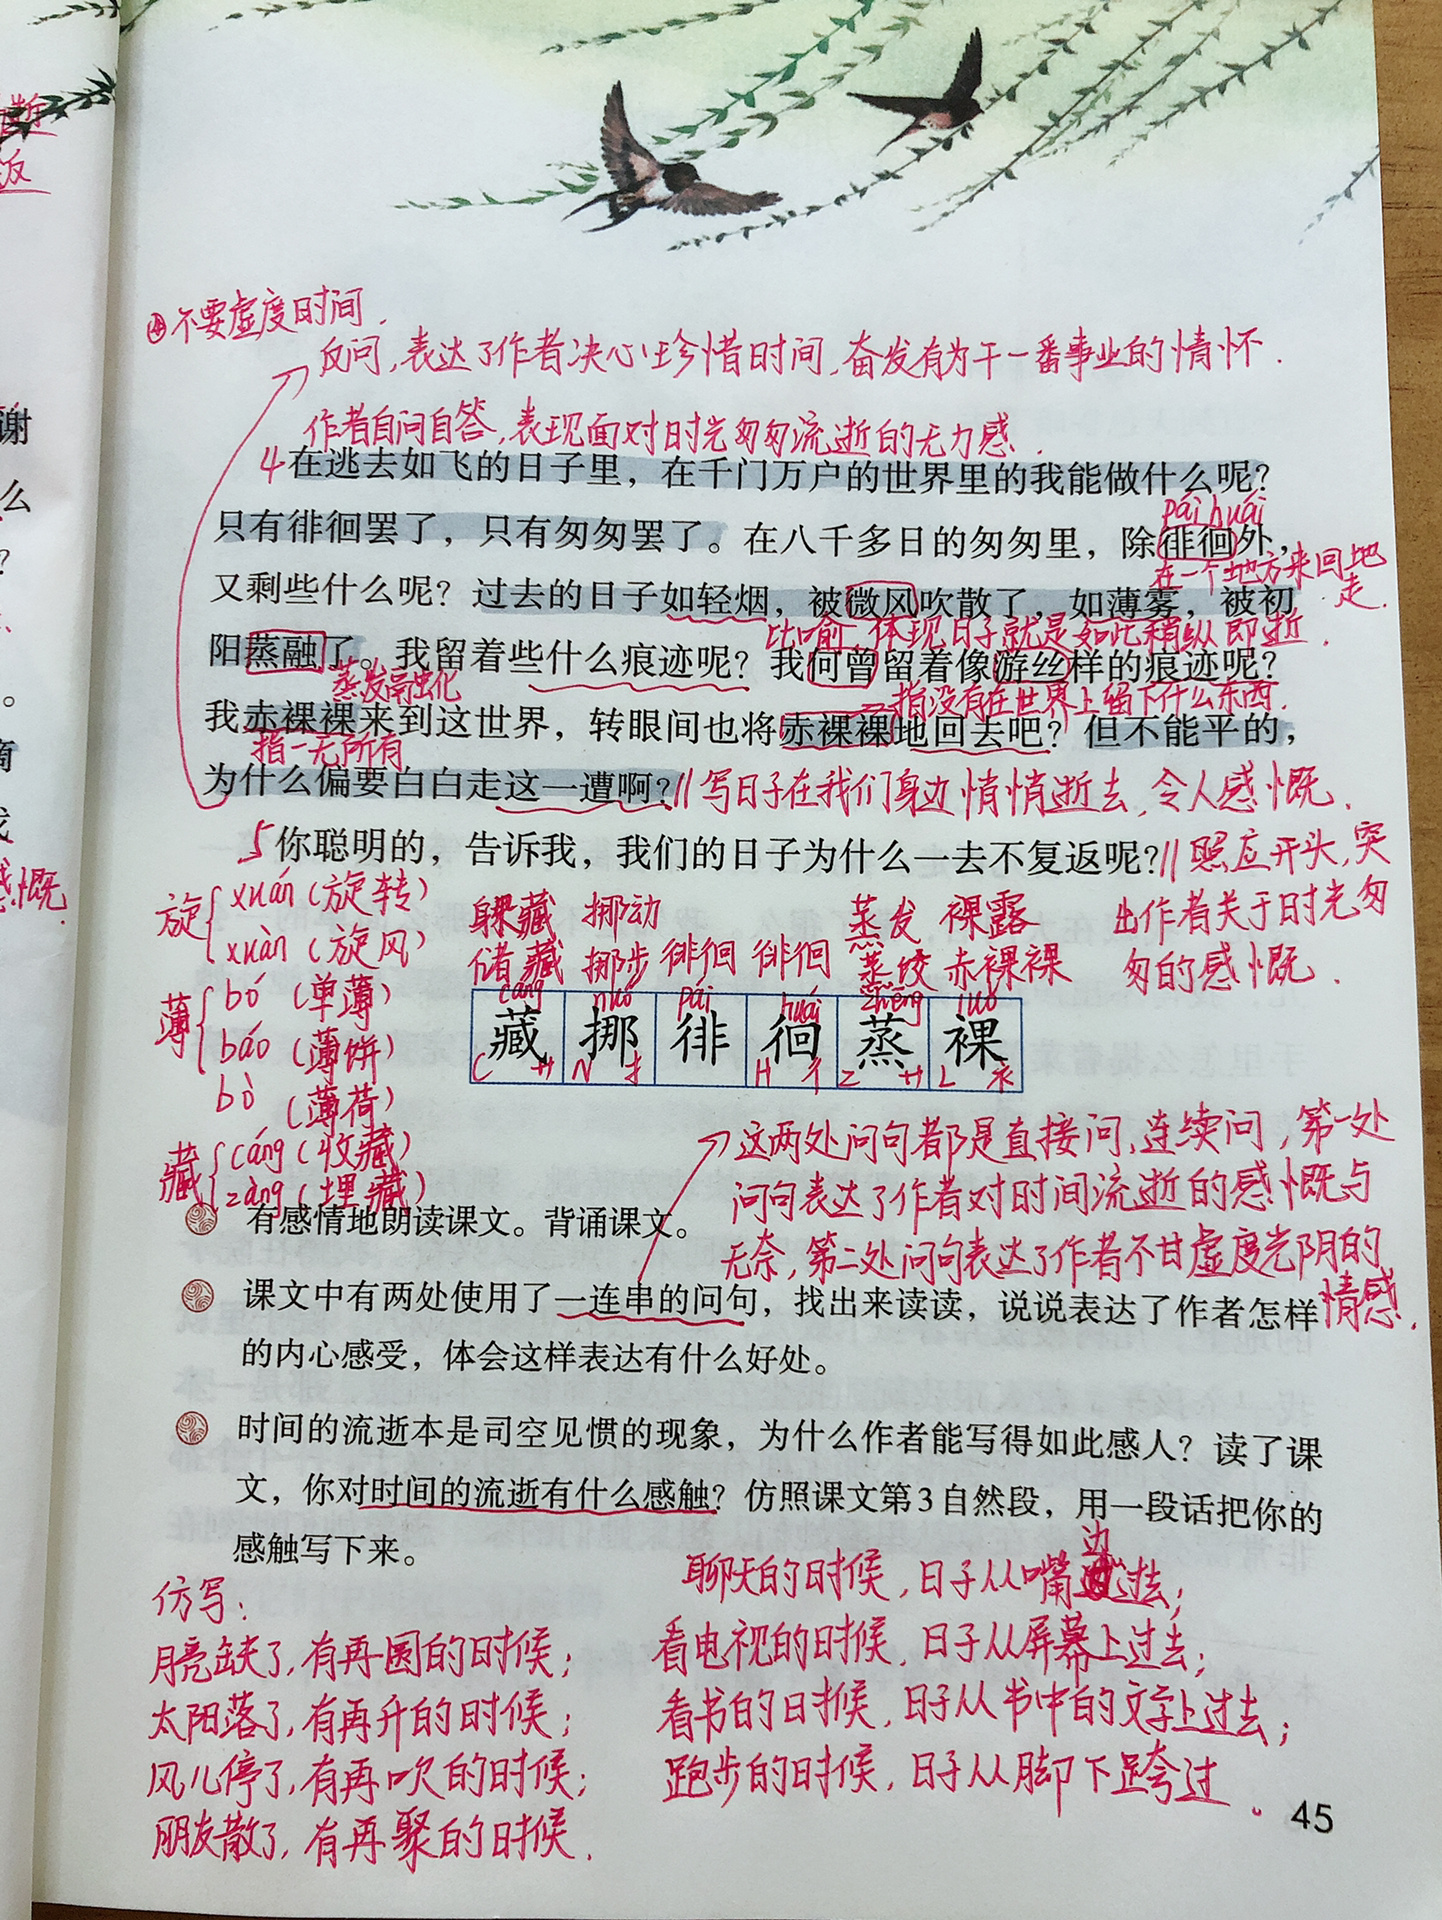 断
返
谢
么
?
、
。
感慨
④不要虚度时间.
反问,表达了作者决心珍惜时间,奋发有为干一番事业的情怀.
作者自问自答,表现面对时光匆匆流逝的无力感.
4在逃去如飞的日子里，在千门万户的世界里的我能做什么呢？
只有徘徊罢了，只有匆匆罢了。在八千多日的匆匆里，除徘徊外，
pái huái
在一个地方来回地走.
又剩些什么呢？过去的日子如轻烟，被微风吹散了，如薄雾，被初
比喻 体现日子就是如此稍纵即逝.
阳蒸融了。我留着些什么痕迹呢？我何曾留着像游丝样的痕迹呢？
蒸发融化
指没有在世界上留下什么东西.
我赤裸裸来到这世界，转眼间也将赤裸裸地回去吧？但不能平的，
指一无所有
为什么偏要白白走这一遭啊？//写日子在我们身边悄悄逝去,令人感慨.
5你聪明的，告诉我，我们的日子为什么一去不复返呢？//照应开头,突
出作者关于时光匆
匆的感慨.
旋 xuán(旋转)
xuàn(旋风)
薄 bó (单薄)
báo (薄饼)
bò (薄荷)
藏 cáng(收藏)
zàng(埋藏)
躲藏 挪动 蒸发 裸露
储藏 挪步 徘徊 徘徊 蒸饺 赤裸裸
cáng nuó pái huái zhēng luǒ
藏 挪 徘 徊 蒸 裸
C 艹 N 扌 H 彳 Z 艹 L 衤
有感情地朗读课文。背诵课文。
这两处问句都是直接问,连续问,第一处
问句表达了作者对时间流逝的感慨与
无奈,第二处问句表达了作者不甘虚度光阴的
情感.
课文中有两处使用了一连串的问句，找出来读读，说说表达了作者怎样
的内心感受，体会这样表达有什么好处。
时间的流逝本是司空见惯的现象，为什么作者能写得如此感人？读了课
文，你对时间的流逝有什么感触？仿照课文第3自然段，用一段话把你的
感触写下来。
仿写:
月亮缺了,有再圆的时候;
太阳落了,有再升的时候;
风儿停了,有再吹的时候;
朋友散了,有再聚的时候.
聊天的时候,日子从嘴边过去;
看电视的时候,日子从屏幕上过去;
看书的时候,日子从书中的文字上过去;
跑步的时候,日子从脚下跨过。
45